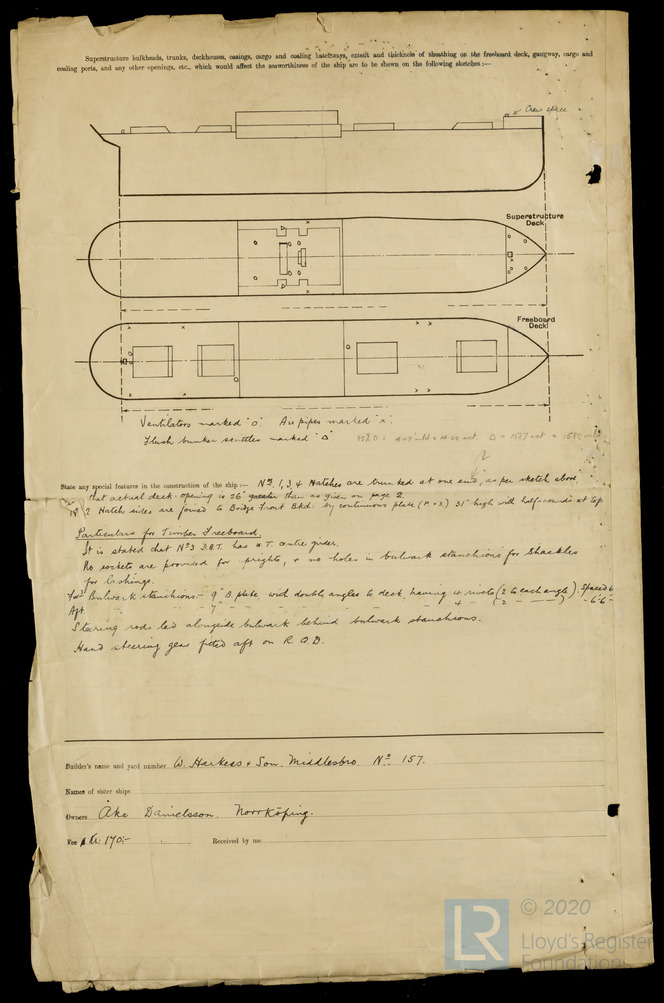 Superstructure bulkheads, trunks, deckhouses, casings, cargo and coaling hatchways, extent and thickness of sheathing on the freeboard deck, gangway, cargo and
coaling ports, and any other openings, etc., which would affect the seaworthiness of the ship are to be shewn on the following sketches:—
Crew space
Superstructure
Deck
Freeboard
Deck
Ventilators marked "o". Air pipes marked "x".
Flush bunker scuttles marked "Δ"
State any special features in the construction of the ship:— Nos. 1, 3, 4 Hatches are trunked at one end, as per sketch above,
that actual deck-opening is 26" greater than as given on page 2.
No 2 Hatch sides are joined to Bridge Front Bkd. by continuous plate (P. & S.) 31" high with half-rounds at top
Particulars for Timber Freeboard.
It is stated that No 3 D.B.T. has W.T. centre girder.
No sockets are provided for uprights, & no holes in bulwark stanchions for shackles
for lashings.
Forwd Bulwark stanchions:- 9" B. plate, with double angles to deck, having 4 rivets (2 to each angle). Spaced 6
Aft. 7" 4 (2 ) 6'-6"
Steering rods led alongside bulwark behind bulwark stanchions.
Hand steering gear fitted aft on R.Q.D.
Builder's name and yard number W. Harkess & Son. Middlesbro. No. 157.
Names of sister ships
Owners Åke Danielsson. Norrköping.
Fee Kr: 170:- Received by me
LR
© 2020
Lloyd's Register
Foundation